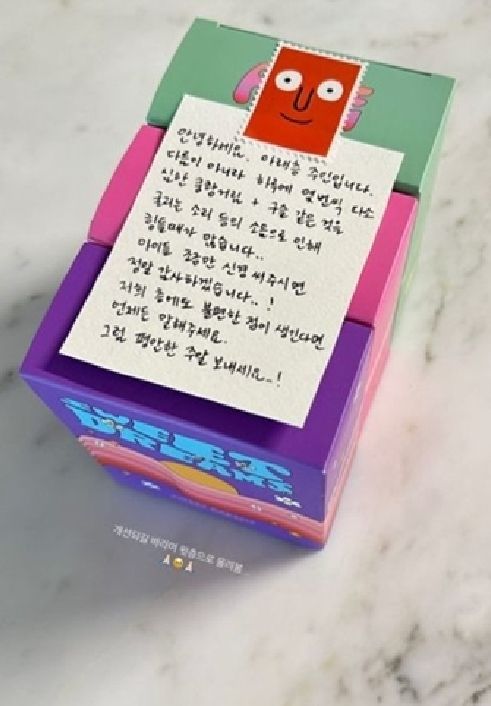 안녕하세요. 아래층 주인입니다.
다름이 아니라 하루에 몇번씩 다소
심한 쿵쾅거림 + 구슬 같은 것을
굴리는 소리 등의 소음으로 인해
힘들때가 많습니다..
아이들 조금만 신경 써주시면
정말 감사하겠습니다..!
저희 층에도 불편한 점이 생긴다면
언제든 말해주세요.
그럼 편안한 주말 보내세요..!
SWEET
DREAMS
개선되길 바라며 윗층으로 올려봄